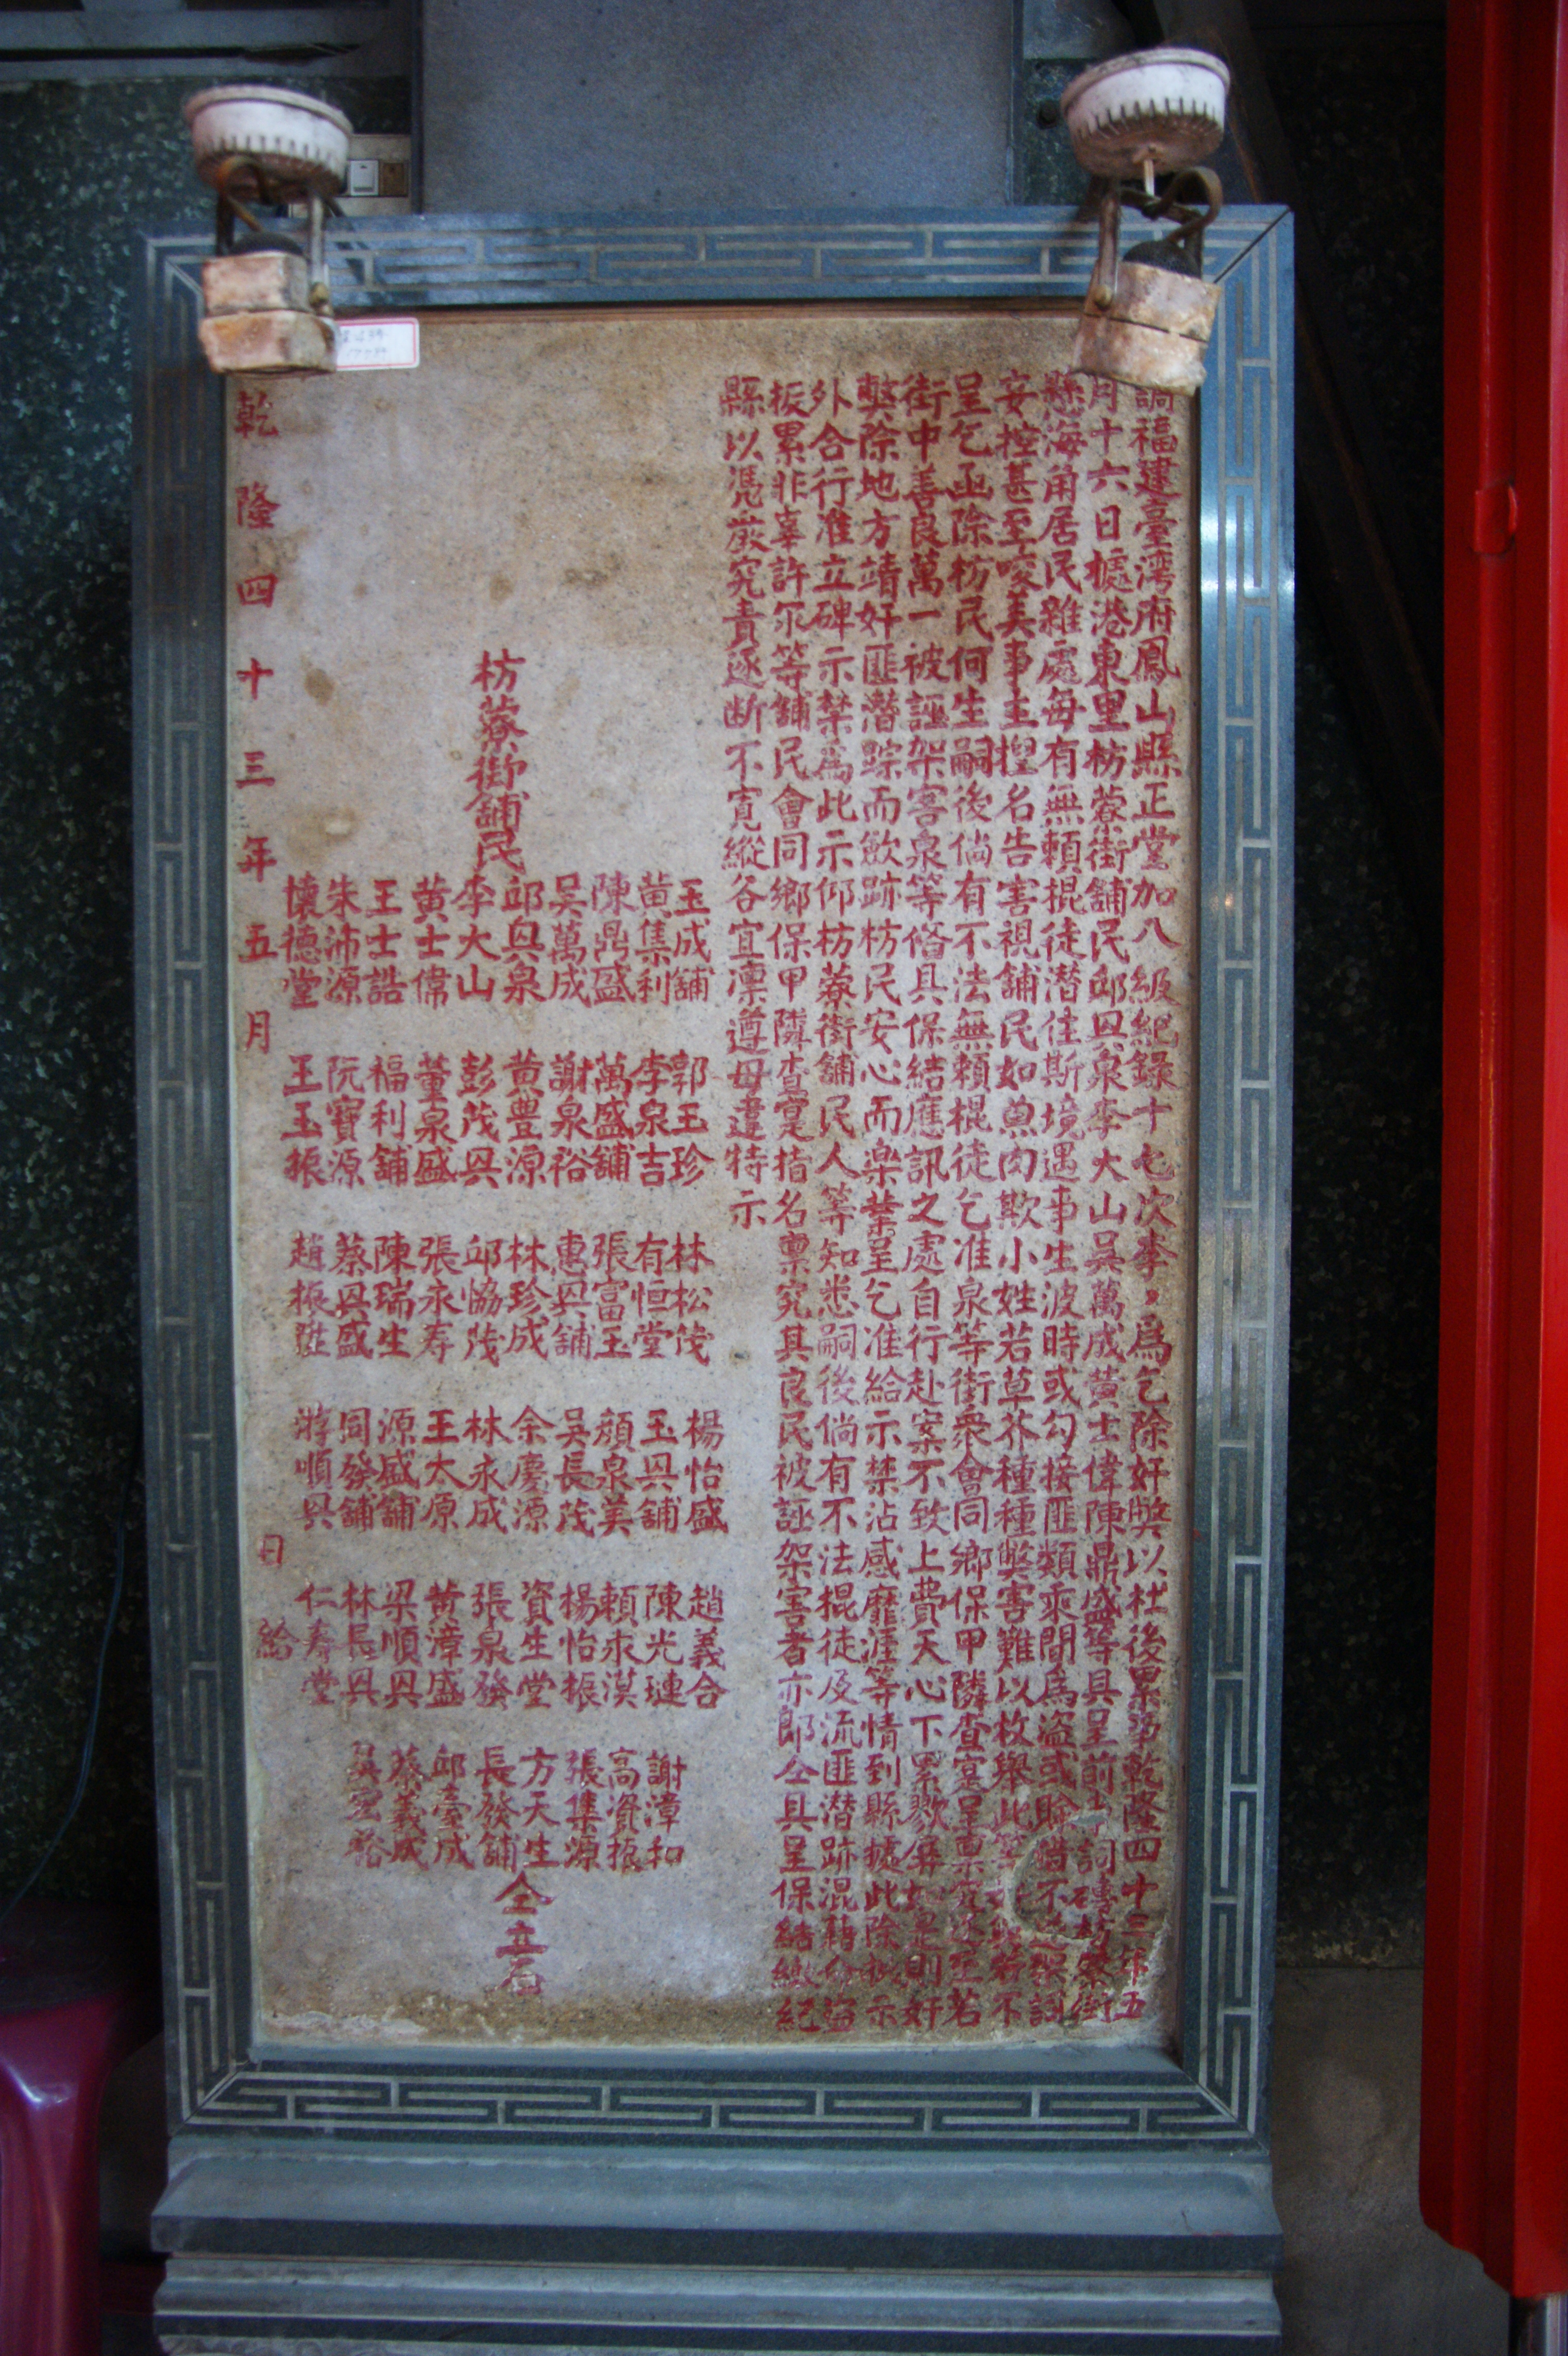 調福建臺湾府鳳山縣正堂加八級紀錄十七次李，為乞除奸獘以杜後累事乾隆四十三年五
月十六日據港東里枋藔街舖民邱興泉李大山吳萬成黃士偉陳鼎盛等具呈前事詞稱枋藔街
懸海角居民雜處每有無賴棍徒潜住斯境遇事生波時或勾接匪類乘間為盗或賒借不
妄控甚至唆美事主揑名告害視舖民如魚肉欺小姓若草芥種種獘害難以枚舉此等若不
呈乞亟除枋民何生嗣後倘有不法無賴棍徒乞准泉等街衆會同鄉保甲隣查寔呈稟究逐至若
街中善良萬一被誣架害泉等俻具保結應訊之處自行赴案不致上費天心下累如是則奸
獘除地方靖奸匪潜踪而歛跡枋民安心而楽業呈乞准給示禁沾感靡涯等情到縣據此除批示
外合行准立碑示禁為此示仰枋藔街舖民人等知悉嗣後倘有不法棍徒及流匪潜跡混藉命盗
扳累非辜許爾等舖民會同鄉保甲隣查寔指名稟究其良民被誣架害者亦即仝具呈保結繳紀
縣以凴嚴究責逐断不寛縱各宜凛遵毋違特示
玉成舖 郭玉珍 林松茂 楊怡盛 趙義合
黄集利 李泉吉 有恒堂 玉興舖 陳光璉 謝漳和
陳鼎盛 萬盛舖 張富玉 顏泉美 賴永漠 高瓷振
吳萬成 謝泉裕 惠興舖 吳長茂 楊怡振 張集源
枋藔街舖民 邱興泉 黄豊源 林珍成 余慶源 資生堂 方天生 仝立石
李大山 彭茂興 邱協茂 林永成 張泉發 長發舖
黄士偉 董泉盛 張永寿 王太原 黄漳盛 邱臺成
王士誥 福利舖 陳瑞生 源盛舖 梁順興 蔡義成
朱沛源 阮寶源 蔡興盛 同發舖 林長興 吳宏裕
懷德堂 王玉振 趙振陞 游順興 仁寿堂
乾隆四十三年五月 日給